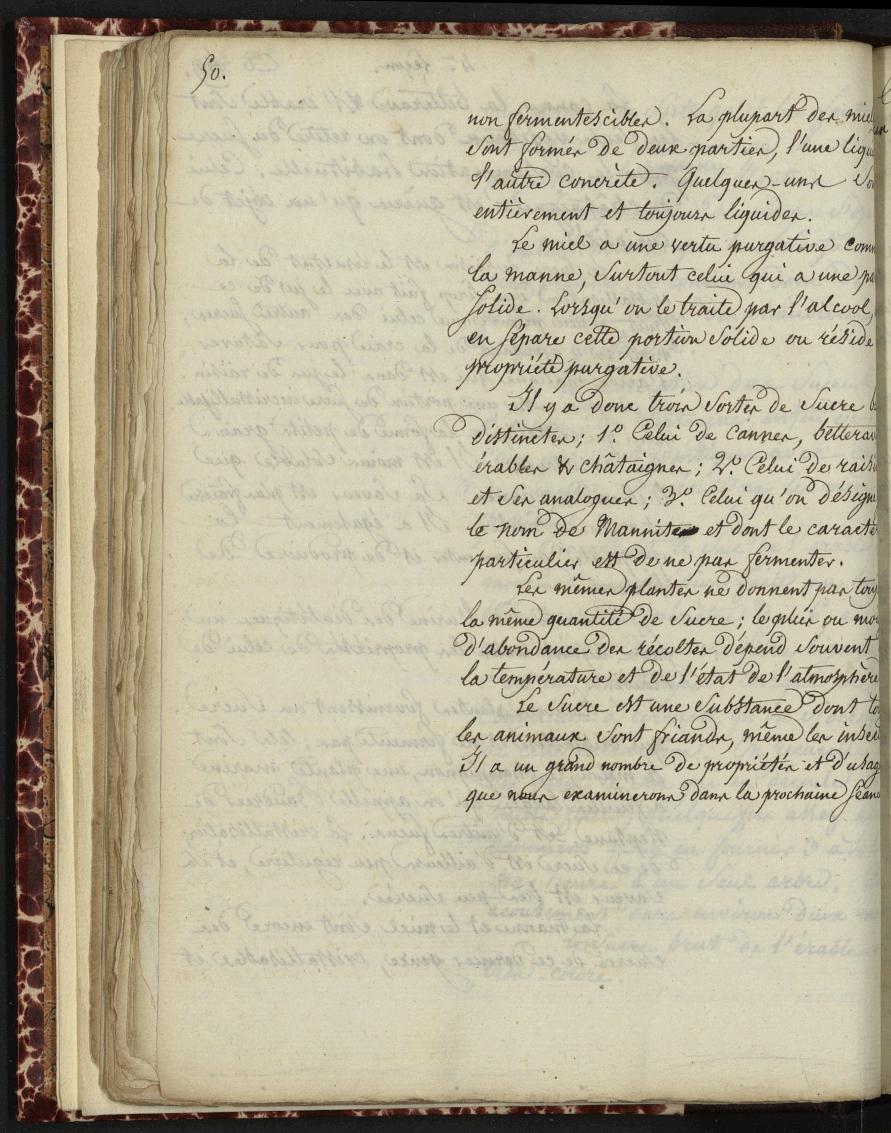 50.
non fermentescibles. La plupart des miels
sont formés de deux parties, l'une liqu
l'autre concrète. Quelques-uns so
entièrement et toujours liquides.
Le miel a une vertu purgative comm
la manne, surtout celui qui a une pa
solide. Lorsqu'on le traite par l'alcool,
en sépare cette portion solide ou réside
propriété purgative.
Il y a donc trois sortes de sucre b
distinctes; 1º. Celui de cannes, betterav
érables & châtaignes; 2º. Celui de raisi
et ses analogues; 3º. Celui qu'on désigne
le nom de Mannite et dont le caractè
particulier est de ne pas fermenter.
Les mêmes plantes ne donnent pas touj
la même quantité de sucre; le plus ou mo
d'abondance des récoltes dépend souvent
la température et de l'état de l'atmosphère
Le sucre est une substance dont to
les animaux sont friands, même les insec
Il a un grand nombre de propriétés et d'usag
que nous examinerons dans la prochaine séan